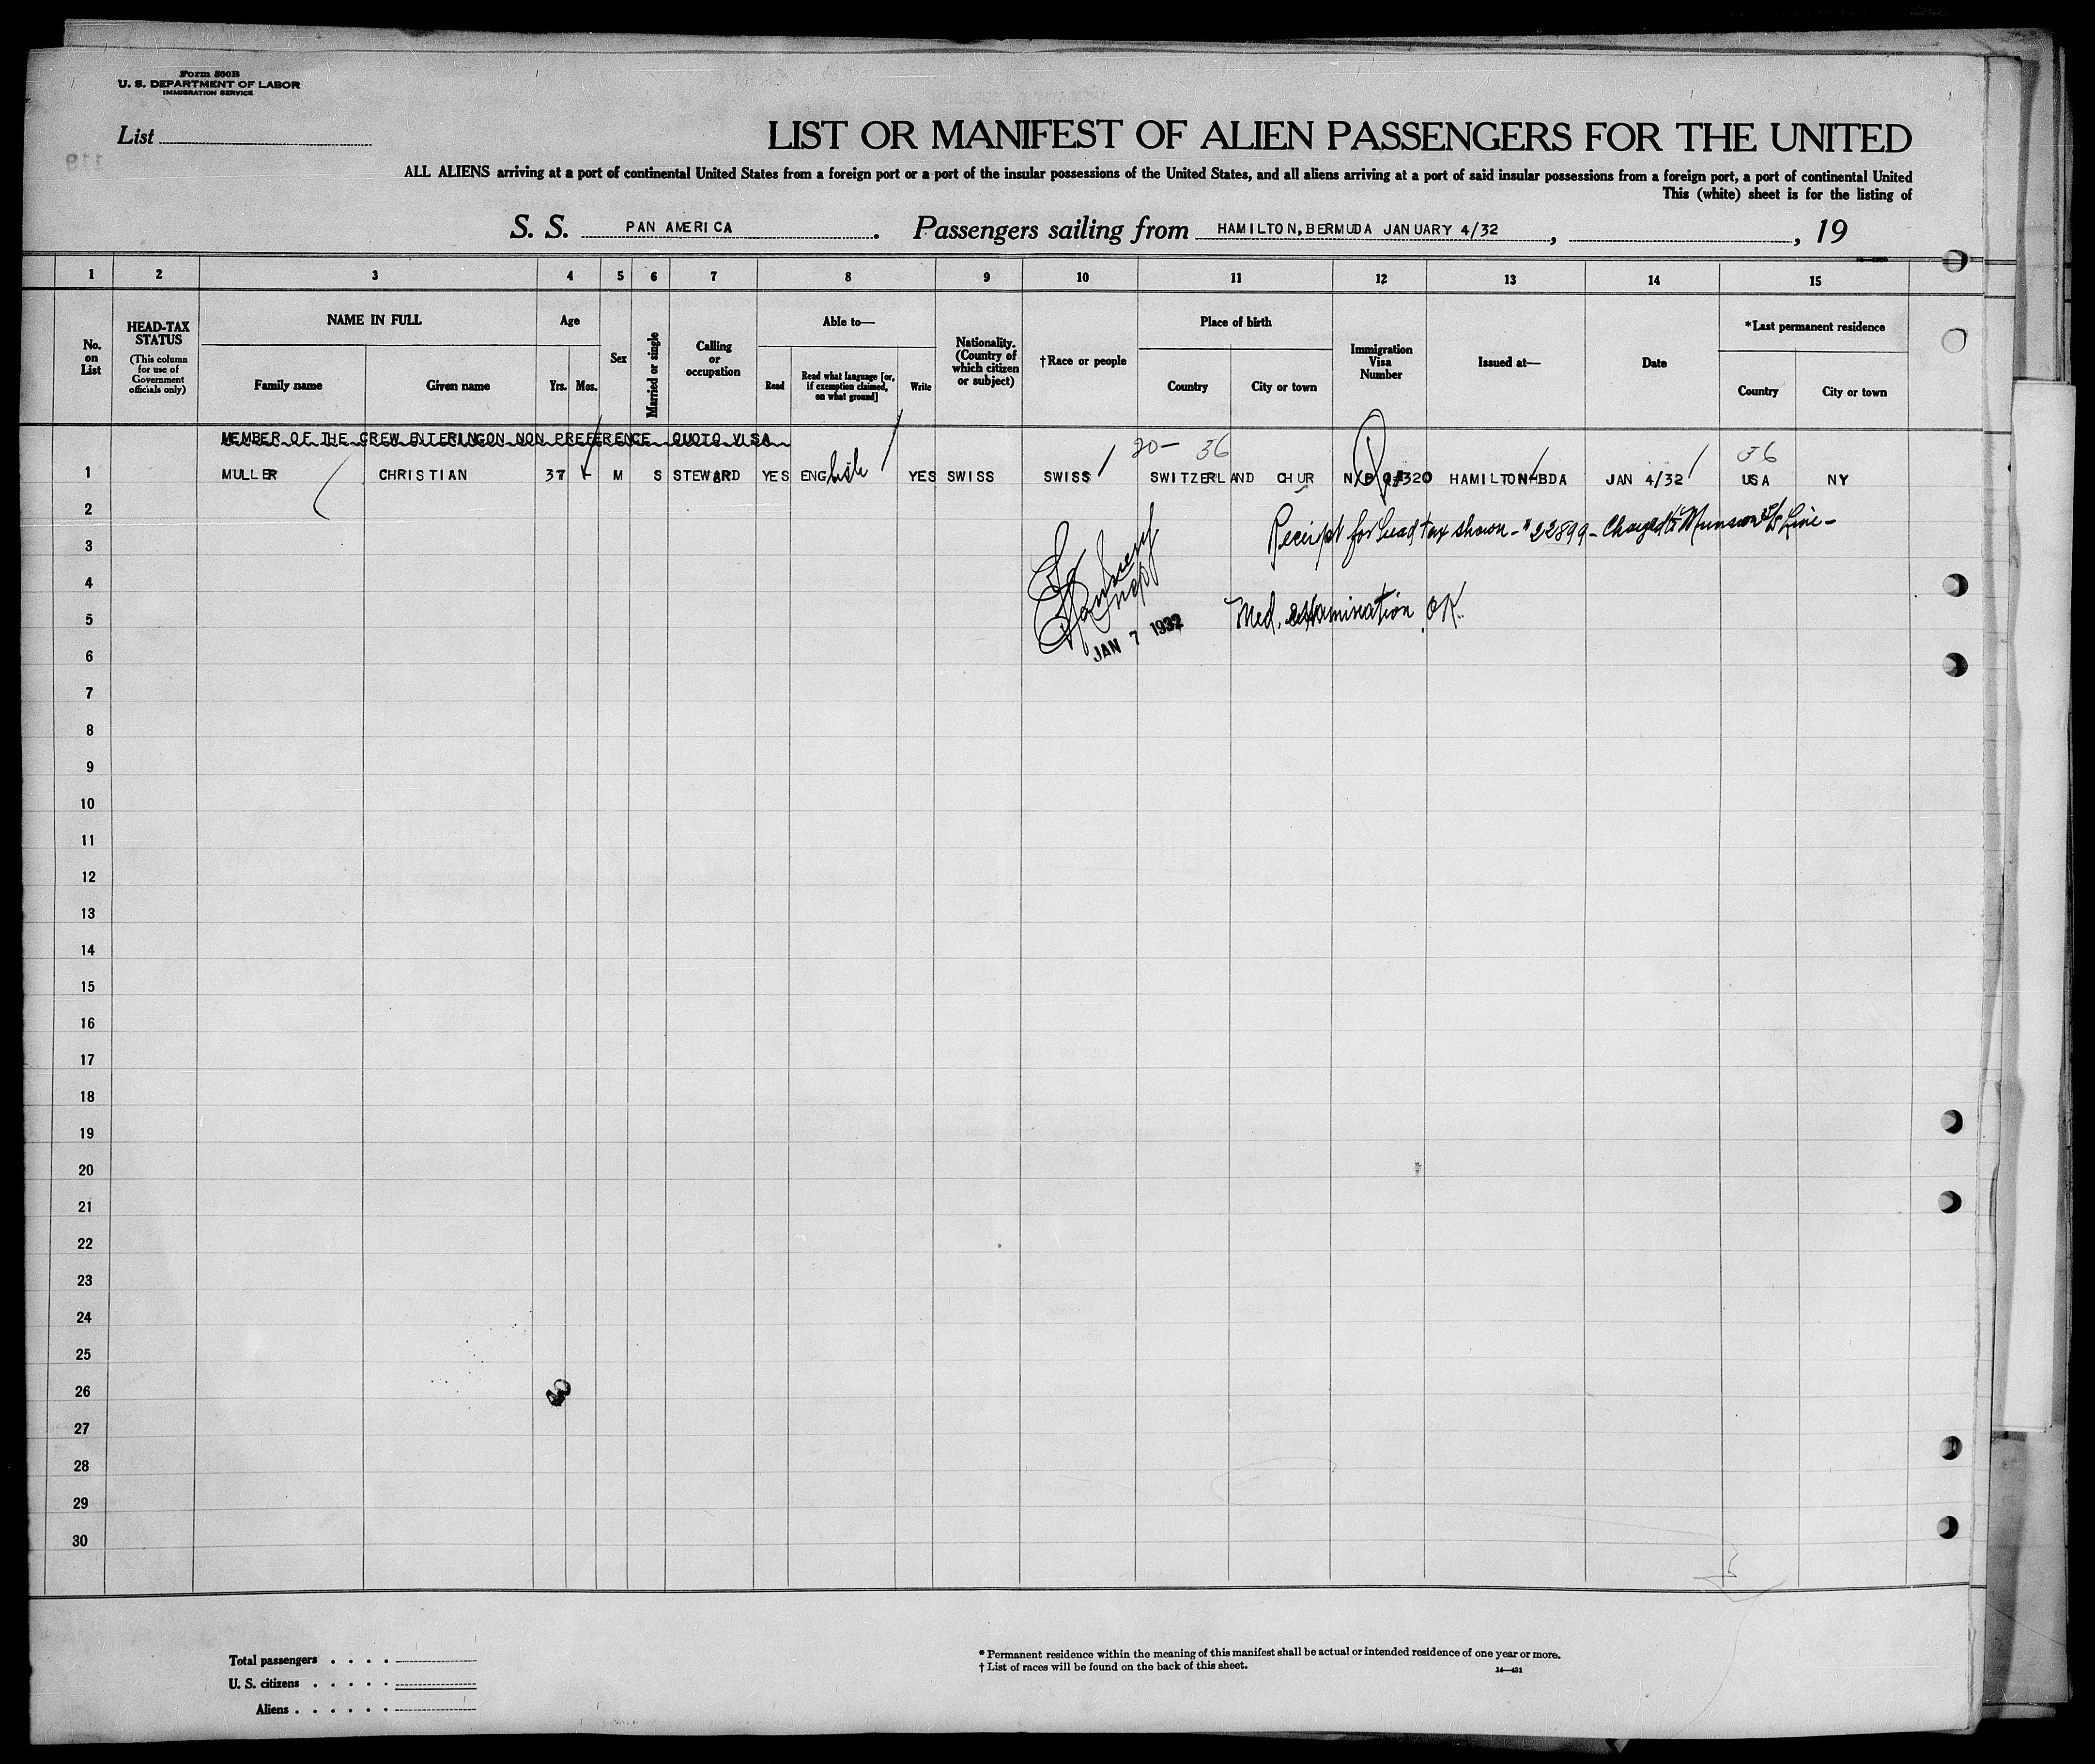 Form 500B
U. S. DEPARTMENT OF LABOR
IMMIGRATION SERVICE
List
119
LIST OR MANIFEST OF ALIEN PASSENGERS FOR THE UNITED
ALL ALIENS arriving at a port of continental United States from a foreign port or a port of the insular possessions of the United States, and all aliens arriving at a port of said insular possessions from a foreign port, a port of continental United
This (white) sheet is for the listing of
S. S. PAN AMERICA. Passengers sailing from HAMILTON, BERMUDA JANUARY 4/32, , 19
1 2 3 4 5 6 7 8 9 10 11 12 13 14 15
No. on List
HEAD-TAX STATUS
(This column for use of Government officials only)
NAME IN FULL
Family name
Given name
Age
Yrs. Mos.
Sex
Married or single
Calling or occupation
Able to—
Read
Read what language [or, if exemption claimed, on what ground]
Write
Nationality. (Country of which citizen or subject)
†Race or people
Place of birth
Country
City or town
Immigration Visa Number
Issued at—
Date
*Last permanent residence
Country
City or town
MEMBER OF THE CREW ENTERINGON NON PREFERENCE QUOTO VISA
20— 36 36
1 MULLER CHRISTIAN 37 M S STEWARD YES ENGlish YES SWISS SWISS SWITZERLAND CHUR #320 HAMILTON-BDA JAN 4/32 USA NY
2
Receipt for head tax shown - #22899 - Charged to Munson S/S Line -
3
4
5
Med. examination OK.
JAN 7 1932
6
7
8
9
10
11
12
13
14
15
16
17
18
19
20
21
22
23
24
25
26
27
28
29
30
Total passengers . . . .
U. S. citizens . . . . .
Aliens . . . . . .
* Permanent residence within the meaning of this manifest shall be actual or intended residence of one year or more.
† List of races will be found on the back of this sheet.
14—431